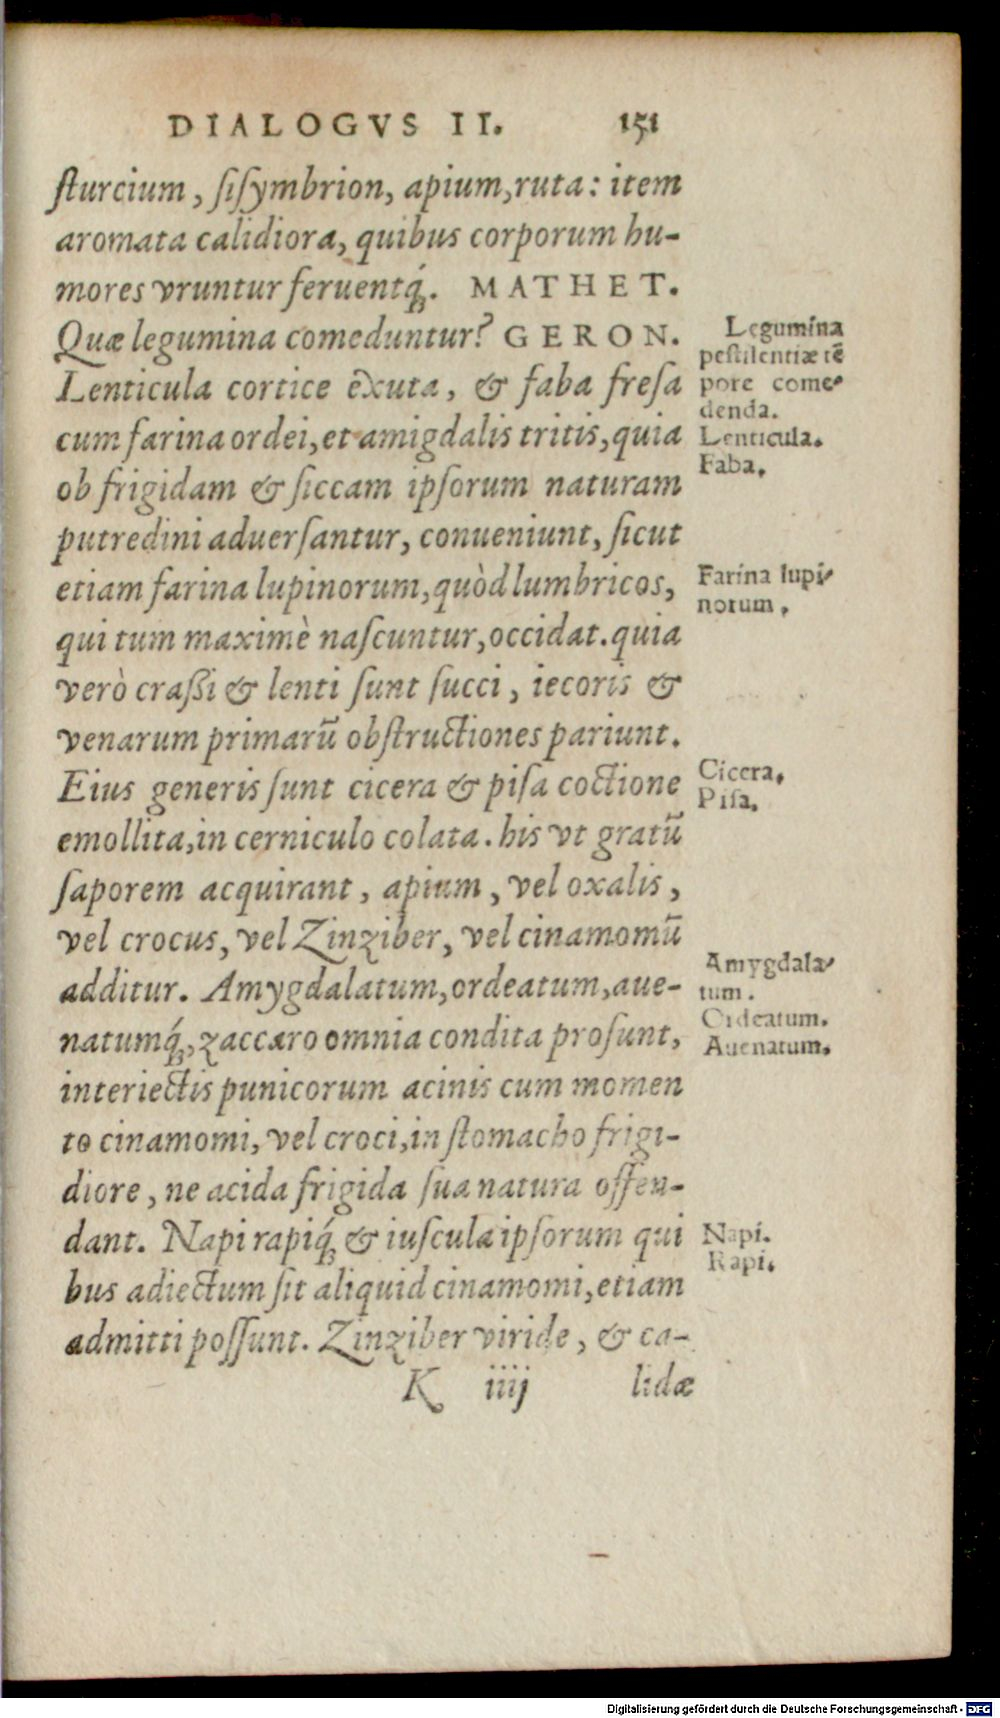 DIALOGVS II. 151
sturcium, sisymbrion, apium, ruta: item
aromata calidiora, quibus corporum hu-
mores vruntur feruentq́;. MATHET.
Quæ legumina comeduntur? GERON.
Lenticula cortice exuta, & faba fresa
cum farina ordei, et amigdalis tritis, quia
ob frigidam & siccam ipsorum naturam
putredini aduersantur, conueniunt, sicut
etiam farina lupinorum, quòd lumbricos,
qui tum maximè nascuntur, occidat. quia
verò craßi & lenti sunt succi, iecoris &
venarum primarũ obstructiones pariunt.
Eius generis sunt cicera & pisa coctione
emollita, in cerniculo colata. his vt gratũ
saporem acquirant, apium, vel oxalis,
vel crocus, vel Zinziber, vel cinamomũ
additur. Amygdalatum, ordeatum, aue-
natumq́;, zaccaro omnia condita prosunt,
interiectis punicorum acinis cum momen
to cinamomi, vel croci, in stomacho frigi-
diore, ne acida frigida sua natura offen-
dant. Napi rapiq́; & iuscula ipsorum qui
bus adiectum sit aliquid cinamomi, etiam
admitti possunt. Zinziber viride, & ca-
K iiij lidæ
Legumina
pestilentiæ tẽ
pore come-
denda.
Lenticula.
Faba.
Farina lupi-
norum.
Cicera.
Pisa.
Amygdala-
tum.
Ordeatum.
Auenatum.
Napi.
Rapi.
Digitalisierung gefördert durch die Deutsche Forschungsgemeinschaft - DFG